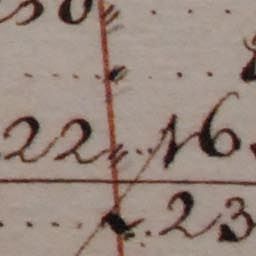 30 "
22 " 16
" 23